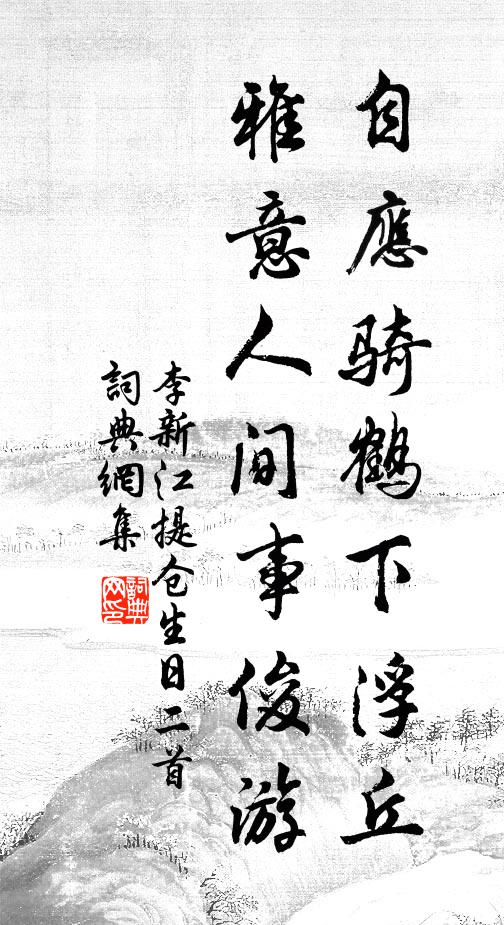 自應騎鶴下浮丘
雅意人間事俊游
李新江提仓生日二首
詞典網集
詞典網印